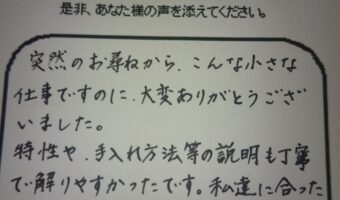 是非、あなた様の声を添えてください。
突然のお尋ねから、こんな小さな
仕事ですのに、大変ありがとうござ
いました。
特性や、手入れ方法等の説明も丁寧
で解りやすかったです。私達に合った